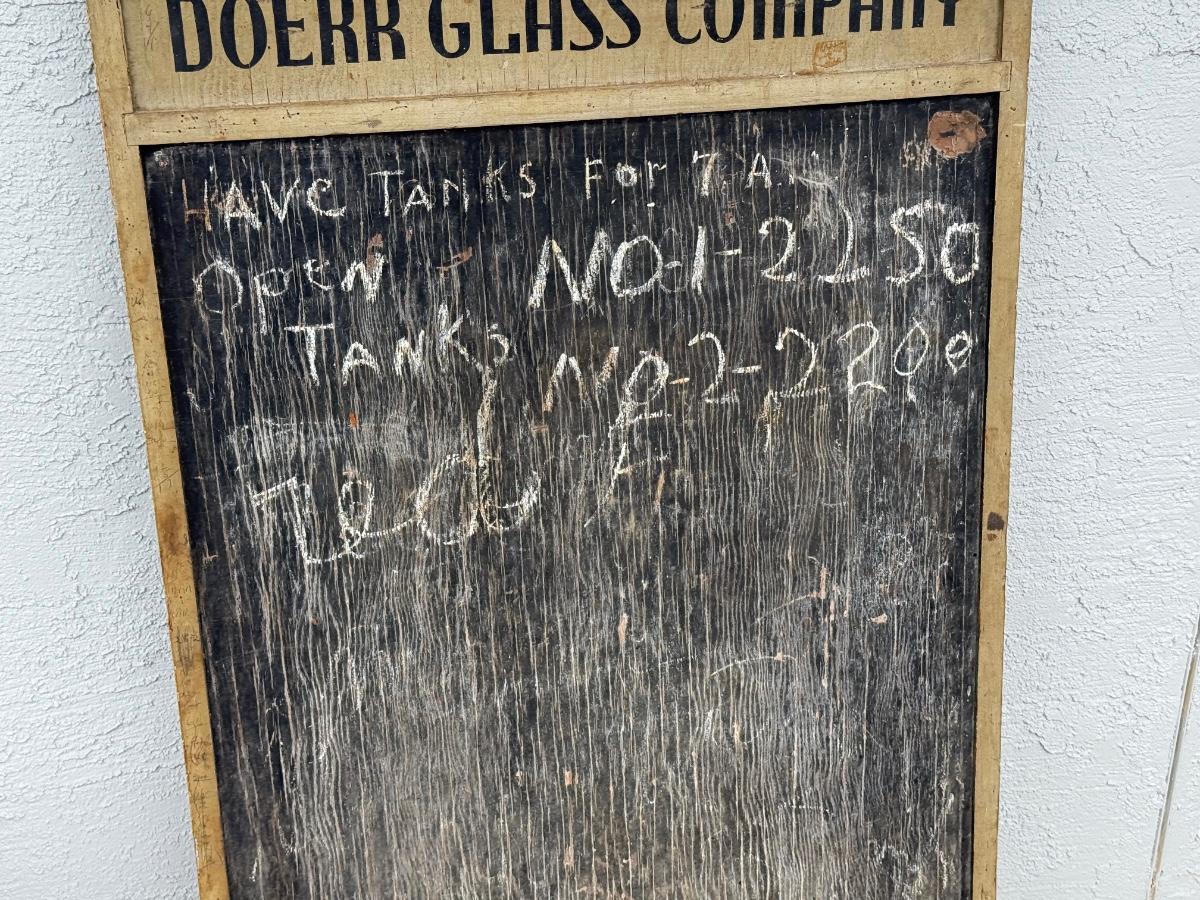 DOERR GLASS COMPANY
HAVE TANKS For 7 A.
OPEN - NO-1-22 50
TANKS NO-2-22 00
Ted